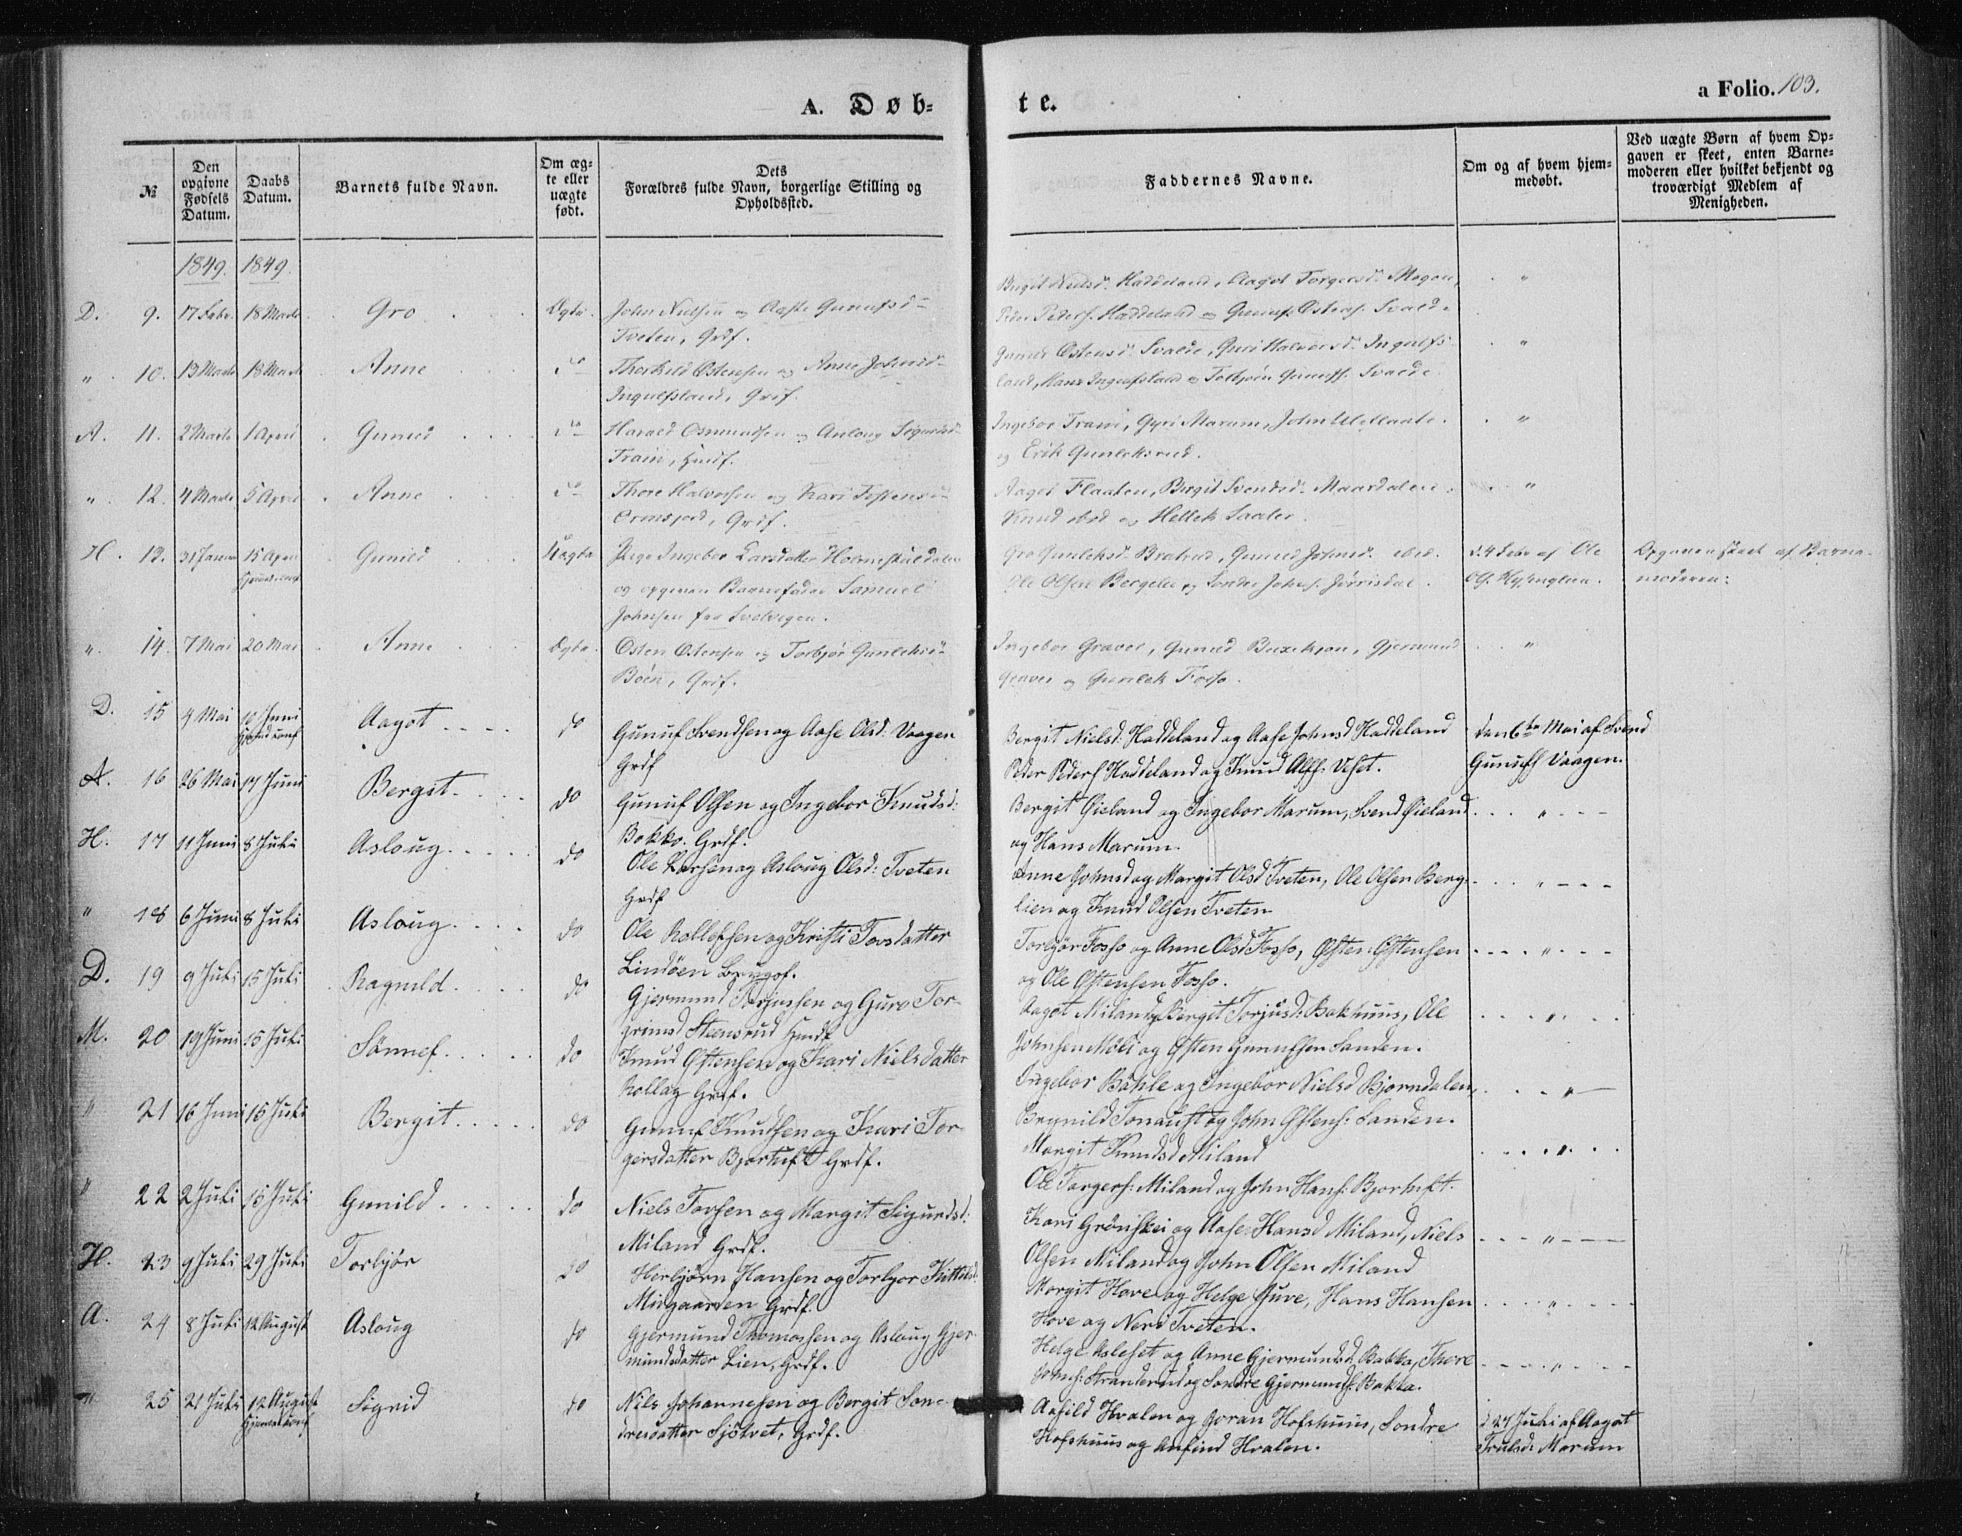 A. Døb-
te.
a Folio. 103.
№
Den opgivne Fødsels Datum.
Daabs Datum.
Barnets fulde Navn.
Om æg-
te eller
uægte
født.
Dets
Forældres fulde Navn, borgerlige Stilling og
Opholdssted.
Faddernes Navne.
Om og af hvem hjem-
medøbt.
Ved uægte Børn af hvem Op-
gaven er skeet, enten Barne-
moderen eller hvilket bekjendt og
troværdigt Medlem af
Menigheden.
1849. 1849.
D. 9. 17 Febr. 18 Marts Gro Ægte. John Nielsen og Aaste Gunufsd
Tveten, Grdf.
Birgit Nielsd. Haddeland, Aagot Torgersd. Mogen,
Peder Peders. Haddeland og Gunuf Østens. Svalde
" 10. 13 Marts 18 Marts Anne do Thorkild Østensen og Anne Johnsd
Ingulfsland, Grdf.
Gunild Østensd. Svalde, Guri Halvorsd. Ingulfs-
land, Hans Ingulfsland og Torbjørn Gunufs. Svalde.
A. 11. 2 Marts 1 April Gunild do Harald Osmundsen og Asloug Sigurdsd
Traen, Huusf.
Ingebor Traen, Gyri Marum, John
og Erik Gunleksrud.
" 12. 4 Marts 5 April Anne do Thore Halvorsen og Kari Tostensd
Ormsjord, Grdf.
Aagot Flaaten, Birgit Svendsd. Maardalen,
Knud ibid og Hellek Saater.
H. 13. 31 Januar 15 April Gunild Uægte Pige Ingebor Larsdatter Holmeskaasdalen
Hjemmedøbt
og opgiven Barnefader Samuel
Johnsen fra Svelvigen.
Gro Gunleksd. Bratrud, Gunild Johnsd. ibid.
Ole Olsen Bergelie og Sondre Johns. Jørrisdal.
d. 4 Febr af Ole
Ols.
Opgaven skeet af Barne-
moderen:
" 14. 7 Mai 20 Mai Anne Ægte. Østen Østensen og Torbjør Gunleksd
Bøen, Grdf.
Ingebor Graver, Gunild, Gjermund
Graver og Gunlek Fosso.
D. 15 4 Mai 10 Juni Aagot do Gunuf Svendsen og Aase Olsd. Vaagen
Grdf
Bergit Nielsd. Haddeland og Aase Johnsd Haddeland
Peder Peders Haddeland og Knud Alfs. Uset.
Den 6te Mai af Svend
Gunufs Vaagen.
A. 16 26 Mai 17 Juni Bergit do Gunuf Olsen og Ingebor Knudsd:
Bokko. Grdf.
Bergit Øieland og Ingebor Marum, Svend Øieland
og Hans Marum.
H. 17 11 Juni 8 Juli Asloug do Ole Larsen og Asloug Olsd: Tveten
Grdf
Anne Johnsd og Margit Olsd Tveten, Ole Olsen Berg-
lien og Knud Olsen Tveten
" 18 6 Juni 8 Juli Asloug do Ole Rollefsen og Kristi Tovsdatter
Lindöen Brugsf.
Torbjør Fosso og Anne Olsd Fosso, Østen Østensen
og Ole Østensen Fosso.
D. 19 9 Juli 15 Juli Ragnild do Gjermund Torjussen og Guro Tor-
grimsd Steensrud Huusf
Aagot Miland og Bergit Torjusd: Bakhuus, Ole
Johnsen Möli og Østen Gunufsen Sanden.
M. 20 19 Juni 15 Juli Sønnef do Knud Østensen og Kari Nielsdatter
Rollag Grdf.
Ingebor Böhle og Ingebor Nielsd Bjorndalen,
Brynild Tonauft og John Østens: Sanden.
" 21 16 Juni 15 Juli Bergit do Gunuf Knudsen og Kari Tor-
gersdatter Bjortuft Grdf.
Margit Knudsd Miland
Ole Torgers: Miland og John Hans: Bjortuft.
" 22 2 Juli 15 Juli Gunild do Niels Torsen og Margit Sigurdsd:
Miland Grdf.
Kari Grönskei og Aase Hansd Miland, Niels
Olsen Miland og John Olsen Miland
H. 23 9 Juli 29 Juli Torbjør do Herbjörn Hansen og Torbjor Kittilsd:
Midgaarden Grdf.
Margit Hove og Helge Juve, Hans Hansen
Hove og Neri Tveten.
A. 24 8 Juli 12 August Asloug do Gjermund Thomassen og Aslaug Gjer-
mundsdatter Lien, Grdf.
Helge Asleset og Anne Gjermundsd. Bakka, Thore
Johns: Stranderud og Sondre Gjermunds: Bakka.
" 25 21 Juli 12 August Sigrid do Nils Johannesen og Bergit Son-
dresdatter Sjötvet, Grdf.
Aashild Hvalen og Goran Hofshuus, Sondre
Hofshuus og Anfind Hvalen.
d 24 Juli af Aagot
Trulsd: Marum